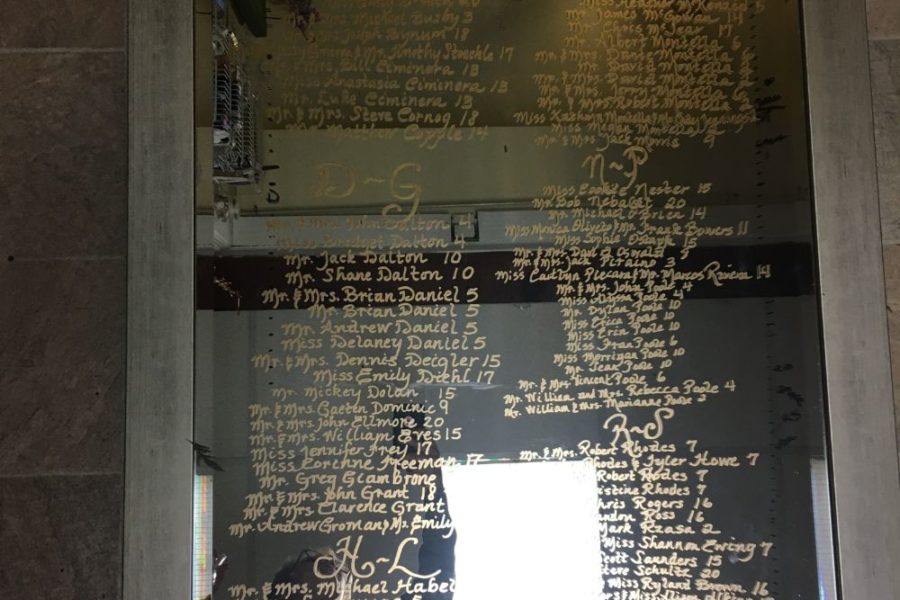 Mr. Michael Busby 3
Joseph Bynum 18
Mr. Timothy Straehle 17
Bill Ciminera 13
Miss Anastasia Ciminera 13
Mr. Luke Ciminera 13
Mr. & Mrs. Steve Cornog 18
Mr. Matthew Coyle 14
D~G
Mr. & Mrs. John Dalton 4
Miss Bridget Dalton 4
Mr. Jack Dalton 10
Mr. Shane Dalton 10
Mr. & Mrs. Brian Daniel 5
Mr. Brian Daniel 5
Mr. Andrew Daniel 5
Miss Delaney Daniel 5
Mr. & Mrs. Dennis Deigler 15
Miss Emily Diehl 17
Mr. Mickey Dolan 15
Mr. & Mrs. Gaeten Dominic 9
Mr. & Mrs. John Ellmore 20
Mr. & Mrs. William Eves 15
Miss Jennifer Frey 17
Miss Corinne Freeman 17
Mr. Greg Giambrone
Mr. & Mrs. John Grant 18
Mr. & Mrs. Clarence Grant
Mr. Andrew Groman & Ms. Emily
H~L
Mr. & Mrs. Michael Habel
Mr. James McGowan 14
Chris McJear 17
Mr. Albert Montella 6
Mr. David Montella 6
Mr. & Mrs. David Montella
Mr. & Mrs. Jerry Montella 6
Mr. & Mrs. Robert Montella 2
Miss Kathryn Montella & Mr.
Miss Megan Montella 2
Mr. & Mrs. Jack Morris 9
N~P
Miss Cookie Nester 15
Mr. Bob Nebalet 20
Mr. Michael O'Brien 14
Miss Monica & Mr. Frank Bowers 11
Miss Sophia 15
Mr. & Mrs. David Oswald 9
Mr. & Mrs. Jack Petraino 3
Miss Caitlyn & Mr. Marcos Rivera 14
Mr. & Mrs. John Poole 4
Miss Alyssa Poole 4
Mr. Dylan Poole 10
Miss Erica Poole 10
Miss Erin Poole 10
Miss Fran Poole 6
Miss Morrigan Poole 10
Mr. Sean Poole 10
Mr. & Mrs. Vincent Poole 6
Mr. William and Mrs. Rebecca Poole 4
Mr. William & Mrs. Marianne Poole 2
R~S
Mr. & Mrs. Robert Rhodes 7
Rhodes & Tyler Howe 7
Robert Rhodes 7
Christine Rhodes 7
Chris Rogers 16
Ross 16
Mark Rzasa 2
Miss Shannon Ewing 7
Scott Saunders 15
Steve Schultz 20
Miss Ryland Brown 16